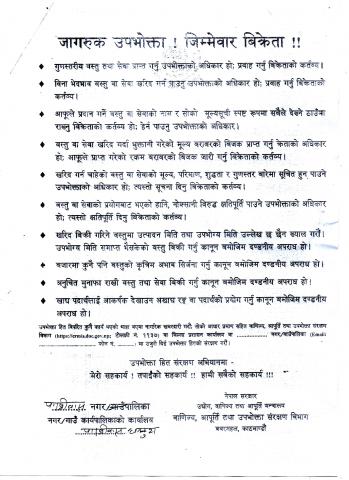 जागरुक उपभोक्ता ! जिम्मेवार बिक्रेता !!
♦ गुणस्तरीय वस्तु तथा सेवा प्राप्त गर्नु उपभोक्ताको अधिकार हो; प्रवाह गर्नु बिक्रेताको कर्तव्य।
♦ बिना भेदभाव वस्तु वा सेवा खरिद गर्न पाउनु उपभोक्ताको अधिकार हो; प्रवाह गर्नु बिक्रेताको
कर्तव्य।
♦ आफूले प्रदान गर्ने वस्तु वा सेवाको नाम र सोको मूल्यसूची स्पष्ट रूपमा सबैले देख्ने ठाउँमा
राख्नु बिक्रेताको कर्तव्य हो; हेर्न पाउनु उपभोक्ताको अधिकार।
♦ वस्तु वा सेवा खरिद गर्दा भुक्तानी गरेको मूल्य बराबरको बिजक प्राप्त गर्नु क्रेताको अधिकार
हो; आफूले प्राप्त गरेको रकम बराबरको बिजक जारी गर्नु बिक्रेताको कर्तव्य।
♦ खरिद गर्न चाहेको वस्तु वा सेवाको मूल्य, परिमाण, शुद्धता र गुणस्तर बारेमा सूचित हुन पाउने
उपभोक्ताको अधिकार हो; त्यस्तो सूचना दिनु बिक्रेताको कर्तव्य।
♦ वस्तु वा सेवाको प्रयोगबाट भएको हानि, नोक्सानी विरुद्ध क्षतिपूर्ति पाउनु उपभोक्ताको अधिकार
हो; त्यस्तो क्षतिपूर्ति दिनु बिक्रेताको कर्तव्य।
♦ खरिद बिक्री गरिने वस्तुमा उत्पादन मिति तथा उपभोग्य मिति उल्लेख छ छैन ख्याल गरौं।
उपभोग्य मिति समाप्त भैसकेको वस्तु बिक्री गर्नु कानून बमोजिम दण्डनीय अपराध हो।
♦ बजारमा कुनै पनि वस्तुको कृत्रिम अभाव सिर्जना गर्नु कानून बमोजिम दण्डनीय अपराध हो।
♦ अनुचित मुनाफा राखी वस्तु तथा सेवा बिक्री गर्नु कानून बमोजिम दण्डनीय अपराध हो।
♦ खाद्य पदार्थलाई आकर्षक देखाउन अखाद्य रङ्ग वा पदार्थको प्रयोग गर्नु कानून बमोजिम दण्डनीय
अपराध हो।
उपभोक्ता हित विपरित कुनै कार्य भएको भएमा सोको आधार प्रमाण सहित वाणिज्य, आपूर्ति तथा उपभोक्ता संरक्षण
विभाग वा जिल्ला प्रशासन कार्यालय वा नगर/गाउँपालिका (Email
फोन नं. ) मा उजुरी दिई उपभोक्ता हितको संरक्षण गरौं।
उपभोक्ता हित संरक्षण अभियानमा -
मेरो सहकार्य ! तपाईंको सहकार्य !! हामी सबैको सहकार्य !!!
नगर/गाउँपालिका
नगर/गाउँ कार्यपालिकाको कार्यालय
नेपाल सरकार
उद्योग, वाणिज्य तथा आपूर्ति मन्त्रालय
वाणिज्य, आपूर्ति तथा उपभोक्ता संरक्षण विभाग
बबरमहल, काठमाडौं